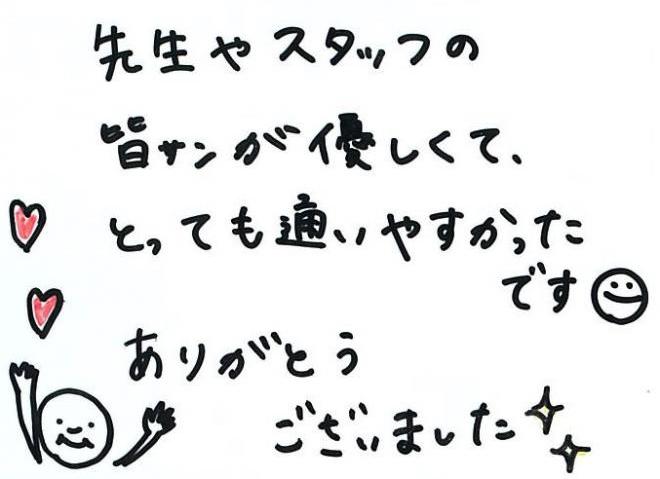 先生やスタッフの
皆サンが優しくて、
とっても通いやすかった
です
ありがとう
ございました